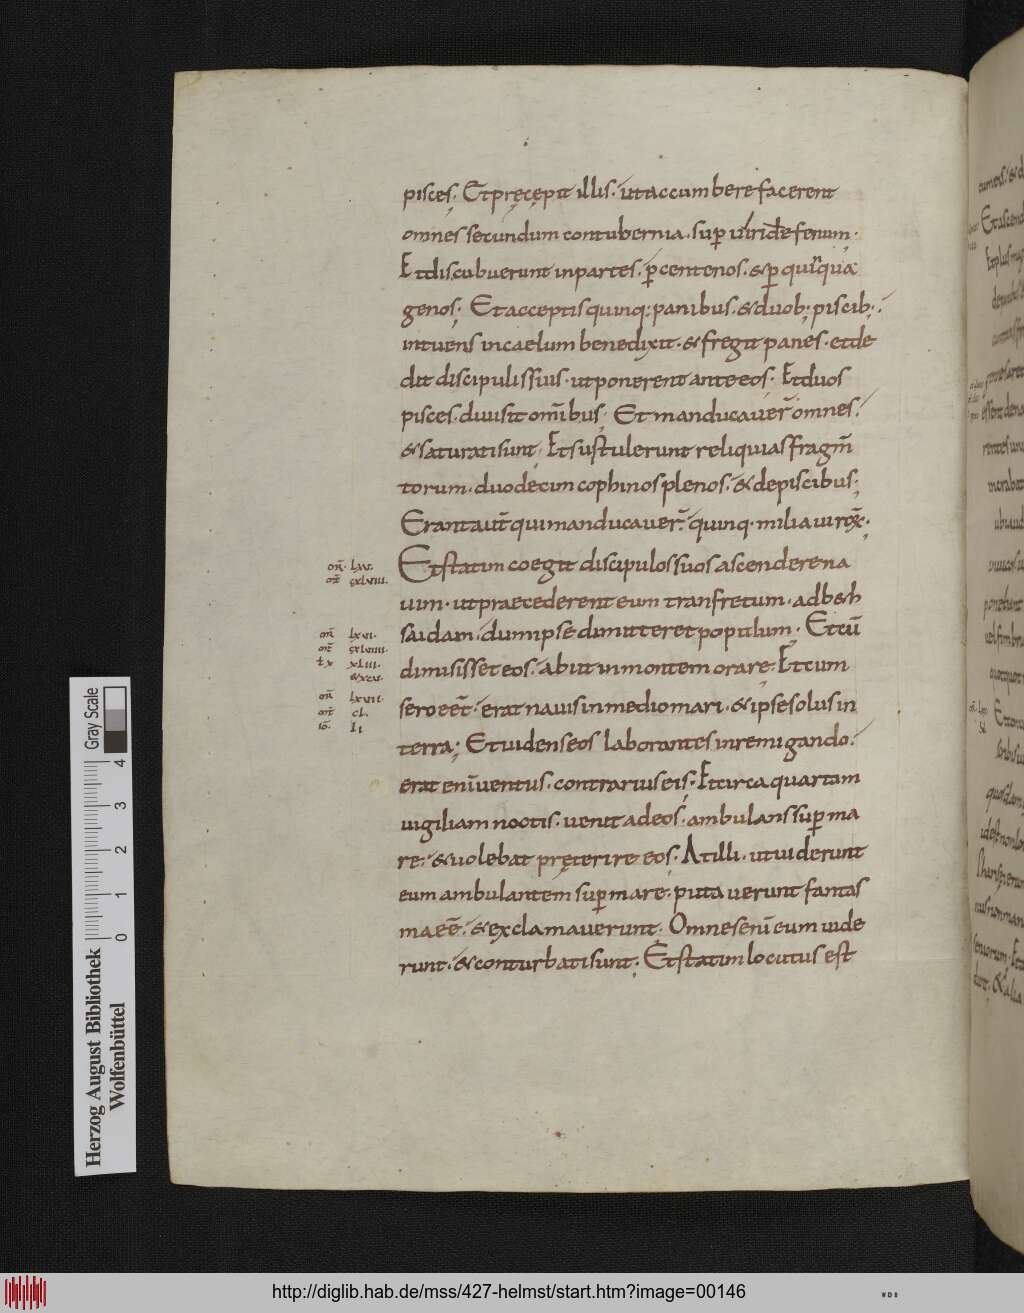 pisces. Et pręcępit illis. ut accumbere facerent
omnes secundum contubernia. sup̄ uiride fenum.
Et discubuerunt in partes. p̄ centenos. & p̄ quinqua
genos; Et acceptis quinq: panibus. & duob; piscib;.
intuens in caelum benedixit. & fregit panes. et de
dit discipulis suis. ut ponerent ante eos. Et duos
pisces. diuisit om̄ibus; Et manducauer̄ omnes.
& saturati sunt; Et sustulerunt reliquias fragm̄
torum. duodecim cophinos plenos. & de piscibus;
Erant aut̄ qui manducauer̄. quinq. milia uiroꝝ.
om̄. lxv.
mt̄. cxlviii.
Et statim coegit discipulos suos ascendere na
uim. ut praecederent eum tranfretum. ad beth
om̄ lxvi.
mt̄ cxlviiii.
saidam. dum ipse dimitteret populum. Et cū
xliii.
& xcvi.
dimisisset eos. abiit in montem orare; Et cum
om̄ lxvii.
mt̄ cl.
io. li
sero eēt. erat nauis in medio mari. & ipse solus in
terra; Et uidens eos laborantes in remigando.
erat enī uentus. contrarius eis; Et circa quartam
uigiliam noctis. uenit ad eos. ambulans sup̄ ma
re. & uolebat pręterire eos. At illi. ut uiderunt
eum ambulantem sup̄ mare. putauerunt fantas
ma eē. & exclamauerunt. Omnes enī eum uide
runt. & conturbati sunt; Et statim locutus est
Gray Scale
0 1 2 3 4
Herzog August Bibliothek
Wolfenbüttel
http://diglib.hab.de/mss/427-helmst/start.htm?image=00146